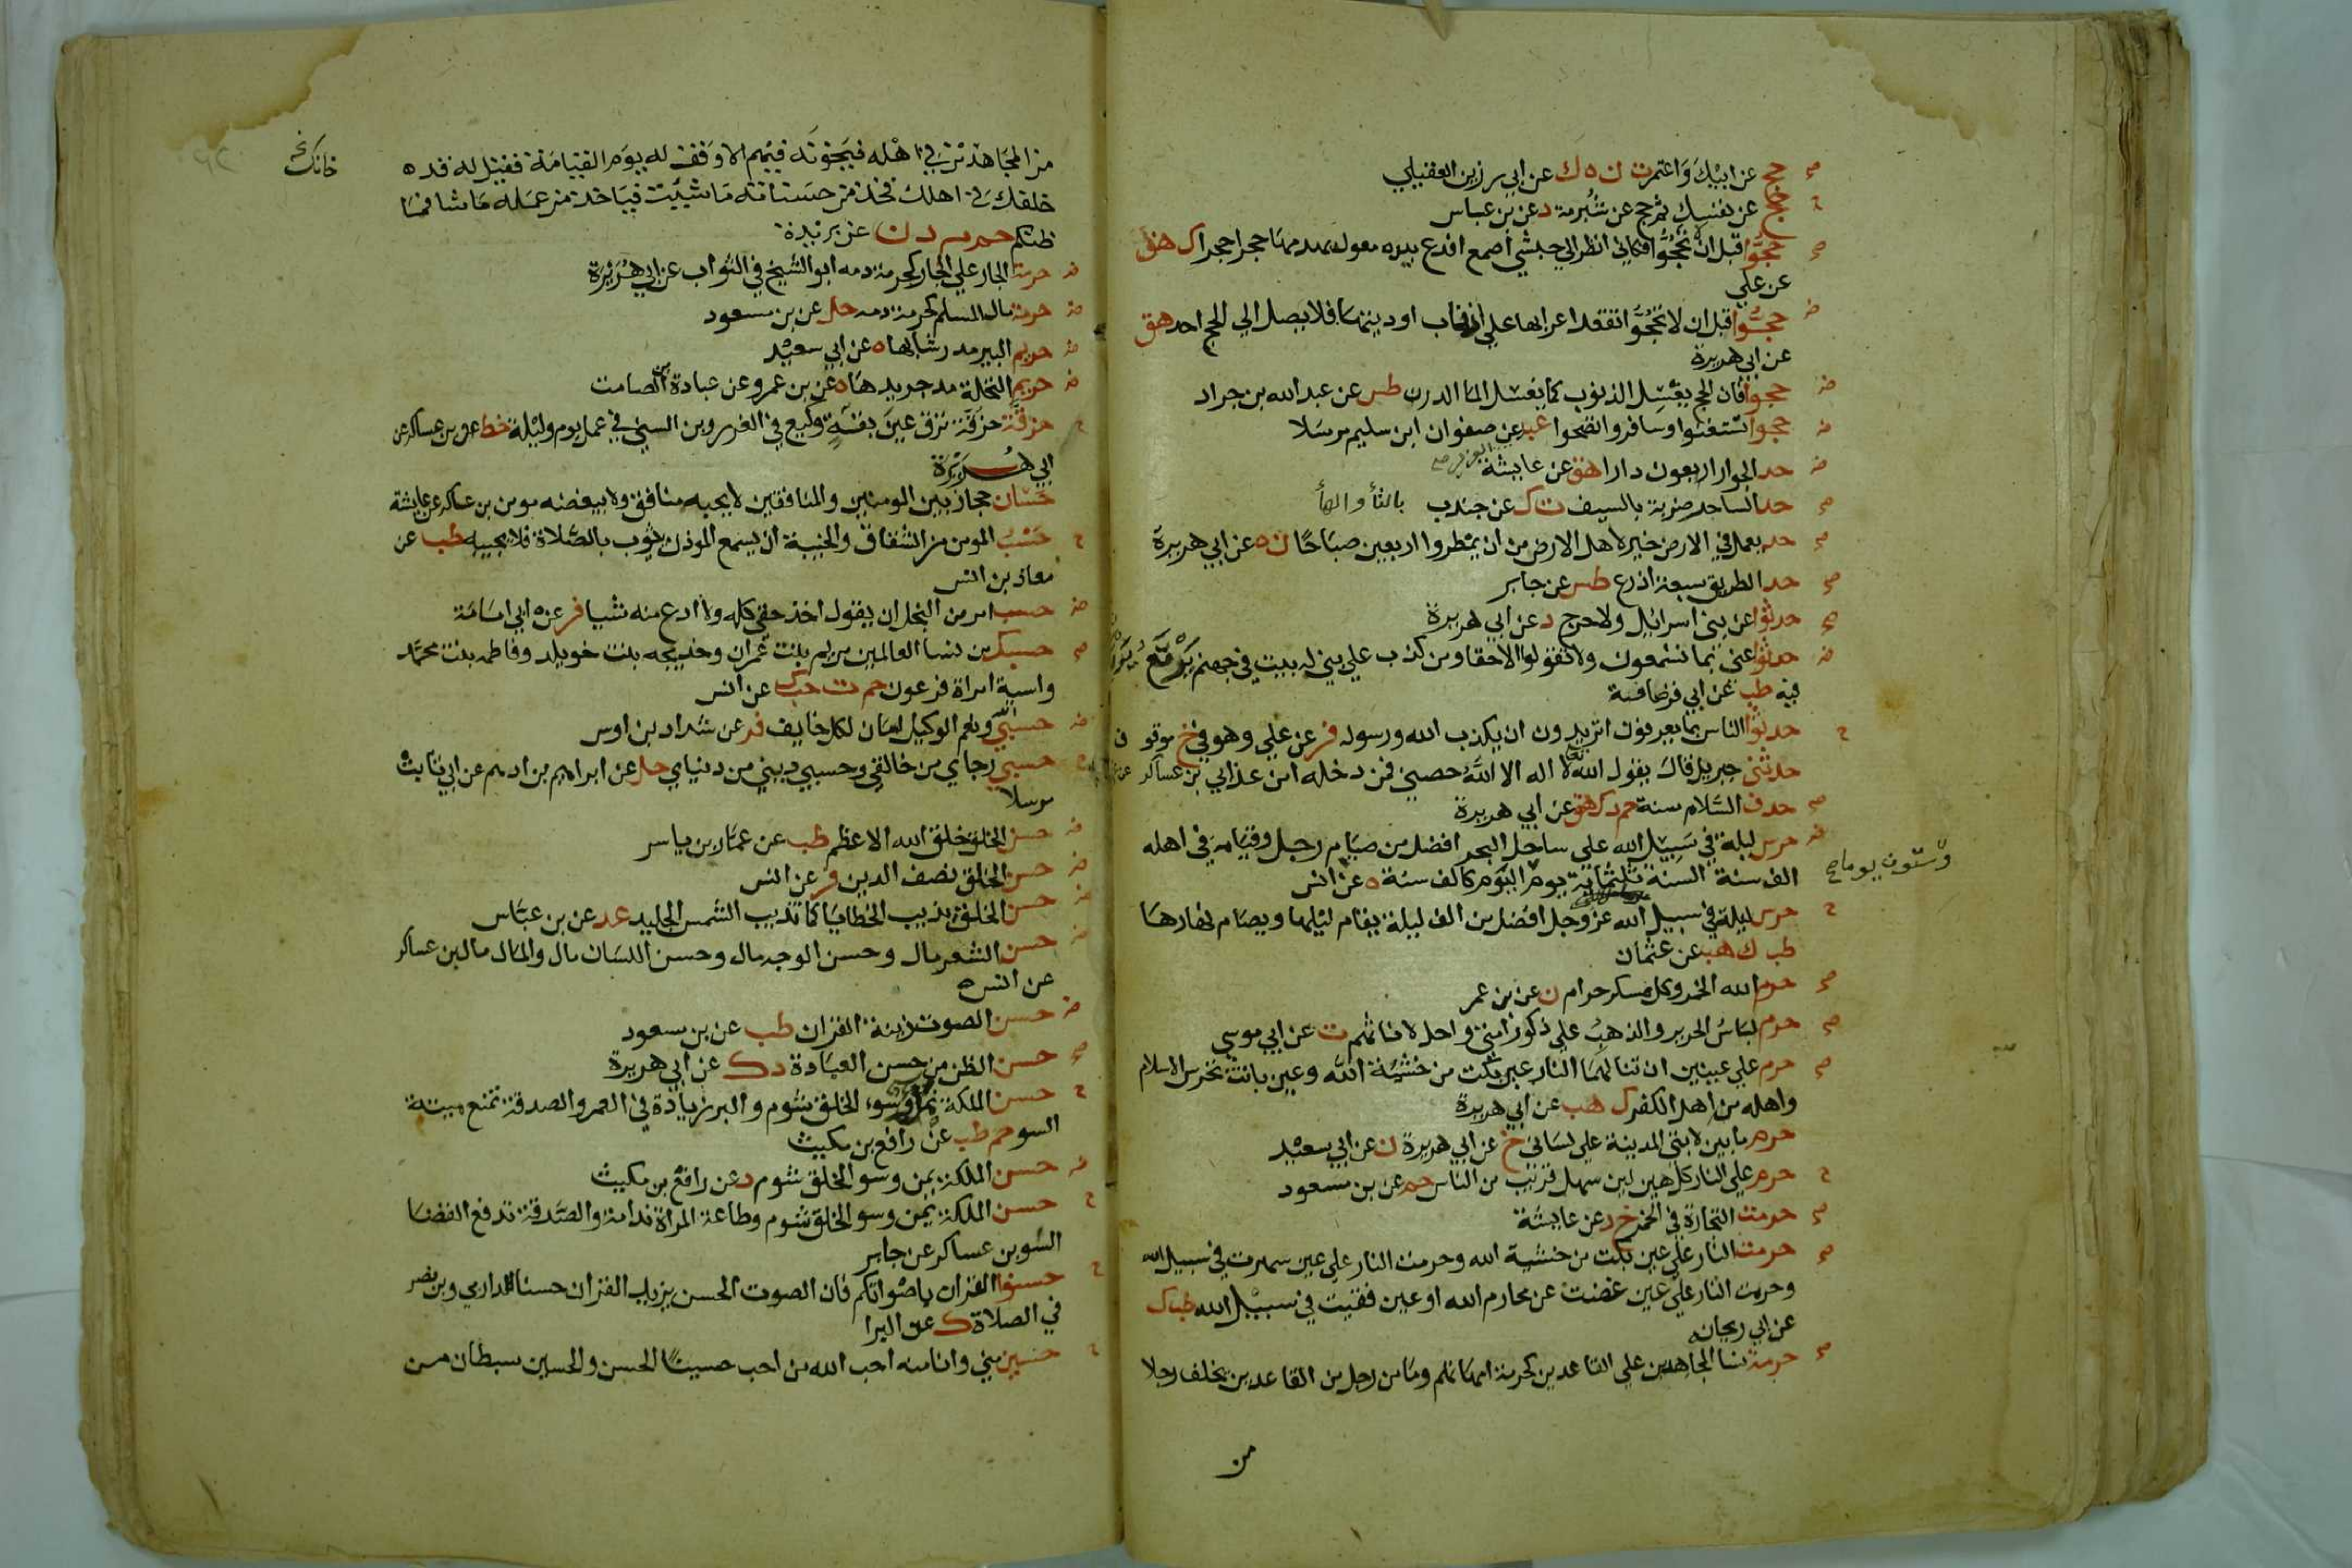 صح حج عن ابيك واعتمر ت ن ه ك عن ابي رزين العقيلي
ح حج عن نفسك ثم حج عن شبرمة د عن بن عباس
صح حجوا قبل ان لا تحجوا فكاني انظر الي حبشي اصمع افدع بيده معول يهدمها حجرا حجرا ك هق
عن علي
ض حجوا قبل ان لا تحجوا تقعد اعرابها علي اذناب اوديتها فلا يصل الي الحج احد هق
عن ابي هريرة
ض حجوا فان الحج يغسل الذنوب كما يغسل الما الدرن طس عن عبد الله بن جراد
ض حجوا تستغنوا وسافروا تصحوا عب عن صفوان ابن سليم مرسلا
ض حد الجوار اربعون دارا هق عن عايشة
صح حد الساحر ضربة بالسيف ت ك عن جندب بالتا والها
صح حد يعمل في الارض خير لاهل الارض من ان يمطروا اربعين صباحا ن ه عن ابي هريرة
صح حد الطريق سبعة اذرع طس عن جابر
صح حدثوا عن بني اسرائيل ولا حرج د عن ابي هريرة
ض حدثوا عني بما تسمعون ولا تقولوا الا حقا ومن كذب علي بني له بيت في جهنم يرتع
فيه طب عن ابي قرصافة
ح حدثوا الناس بما يعرفون اتريدون ان يكذب الله ورسوله فر عن علي وهو في خ موقوف
حدثني جبريل قال يقول الله تع لا اله الا الله حصني فمن دخله امن عذابي بن عساكر عن
صح حذف السلام سنة حم د ك هق عن ابي هريرة
ض حرس ليلة في سبيل الله علي ساحل البحر افضل من صيام رجل وقيامه في اهله
الف سنة السنة ثلثماية يوم اليوم كالف سنة ه عن انس
وستون يوما صح
ح حرس ليلة في سبيل الله عز وجل افضل من الف ليلة يقام ليلها ويصام نهارها
طب ك هب عن عثمان
صح حرم الله الخمر وكل مسكر حرام ن عن بن عمر
صح حرم لباس الحرير والذهب علي ذكور امتي واحل لاناثهم ت عن ابي موسي
صح حرم علي عينين ان تنالهما النار عين بكت من خشية الله وعين باتت تحرس الاسلام
واهله من اهل الكفر ك هب عن ابي هريرة
حرم ما بين لابتي المدينة علي لساني خ عن ابي هريرة ن عن ابي سعيد
ح حرم علي النار كل هين لين سهل قريب من الناس حم عن بن مسعود
صح حرمت التجارة في الخمر خ د عن عايشة
صح حرمت النار علي عين بكت من خشية الله وحرمت النار علي عين سهرت في سبيل الله
وحرمت النار علي عين غضت عن محارم الله او عين فقيت في سبيل الله طب ك
عن ابي ريحانه
صح حرمة نسا المجاهدين علي القاعدين كحرمة امهاتهم وما من رجل من القاعدين يخلف رجلا
من
من المجاهدين في اهله فيخونه فيهم الا وقف له يوم القيامة فقيل له قد
خانك
خلفك في اهلك فخذ من حسناته ما شيت فياخذ من عمله ما شا فما
ظنكم حم م د ن عن بريدة
ض حرمة الجار علي الجار كحرمة دمه ابو الشيخ في الثواب عن ابي هريرة
ض حرمة مال المسلم كحرمة دمه حل عن بن مسعود
ض حريم البير مد رشايها ه عن ابي سعيد
ض حريم النخلة مد جريدها ه عن بن عمر وعن عبادة بن الصامت
ح حزقة حزقة ترق عين بقة وكيع في الغرر وبن السني في عمل يوم وليلة خط وبن عساكر عن
ابي هريرة
حسان حجاز بين المومنين والمنافقين لا يحبه منافق ولا يبغضه مومن بن عساكر عن عايشة
ح حسب المومن من الشقاق والخيبة ان يسمع الموذن يثوب بالصلاة فلا يجيبه طب عن
معاذ بن انس
ض حسب امر من البخل ان يقول اخذ حقي كله ولا ادع منه شيا فر عن ابي امامة
صح حسبك من نسا العالمين مريم بنت عمران وخديجه بنت خويلد وفاطمه بنت محمد
واسية امراة فرعون حم ت حب ك عن انس
ض حسبي الله ونعم الوكيل امان لكل خايف فر عن شداد بن اوس
ض حسبي رجاي من خالقي وحسبي ديني من دنياي حل عن ابراهيم بن ادهم عن ابي ثابت
مرسلا
ض حسن الخلق خلق الله الاعظم طب عن عمار بن ياسر
ض حسن الخلق نصف الدين فر عن انس
ض حسن الخلق يذيب الخطايا كما تذيب الشمس الجليد عد عن بن عباس
ض حسن الشعر مال وحسن الوجه مال وحسن اللسان مال والمال مال بن عساكر
عن انس
ض حسن الصوت زينة القران طب عن بن مسعود
صح حسن الظن من حسن العبادة د ك عن ابي هريرة
ح حسن الملكة نما وسو الخلق شوم والبر زيادة في العمر والصدقة تمنع ميتة
السو حم طب عن رافع بن مكيث
ض حسن الملكة يمن وسو الخلق شوم د عن رافع بن مكيث
ح حسن الملكة يمن وسو الخلق شوم وطاعة المراة ندامة والصدقة تدفع القضا
السو بن عساكر عن جابر
ح حسنوا القران باصواتكم فان الصوت الحسن يزيد القران حسنا الداري وبن نصر
في الصلاة ك عن البرا
ح حسين مني وانا منه احب الله من احب حسينا الحسن والحسين سبطان من